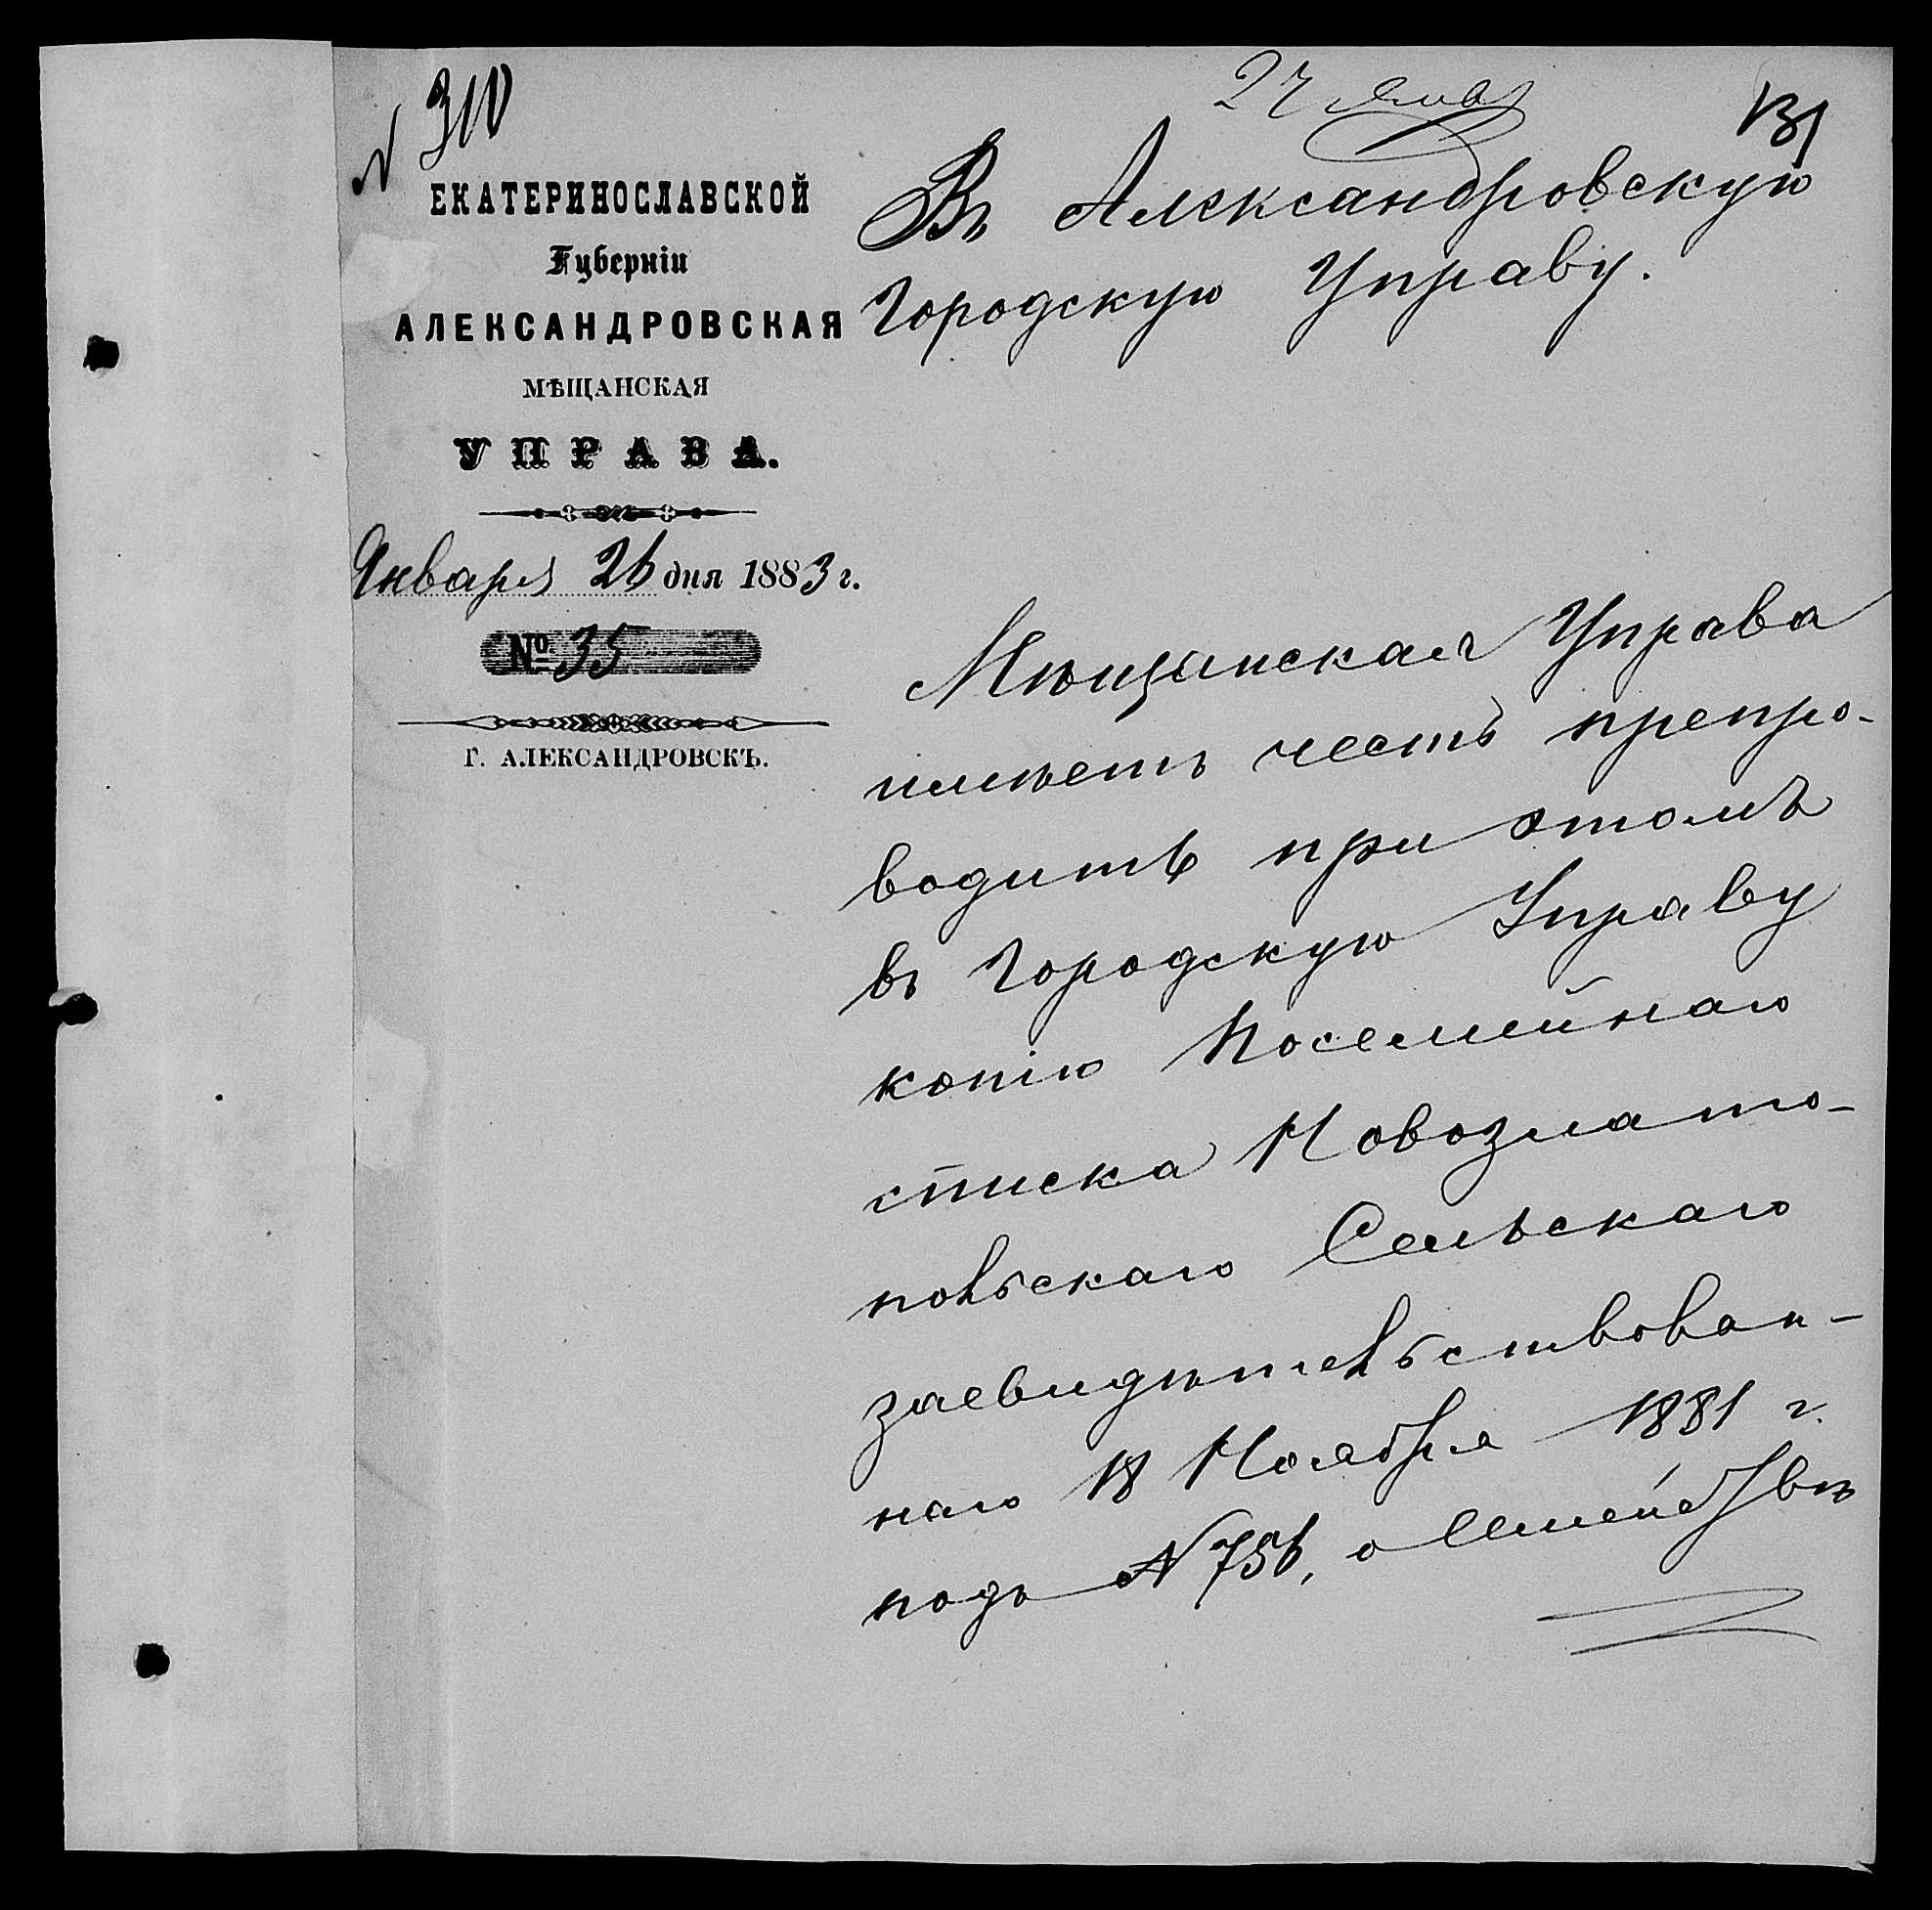 N 310
27 янв
131
ЕКАТЕРИНОСЛАВСКОЙ
Губерніи
АЛЕКСАНДРОВСКАЯ
МѢЩАНСКАЯ
УПРАВА.
Января 26 дня 1883 г.
№ 35
Г. АЛЕКСАНДРОВСКЪ.
Въ Александровскую
Городскую Управу.
Мѣщанская Управа
имѣетъ честь препро-
водить при этомъ
въ Городскую Управу
копію Посемейнаго
списка Новозлато-
польскаго Сельскаго
засвидѣтельствован-
наго 18 Ноября 1881 г.
подъ N 756, о Семействѣ